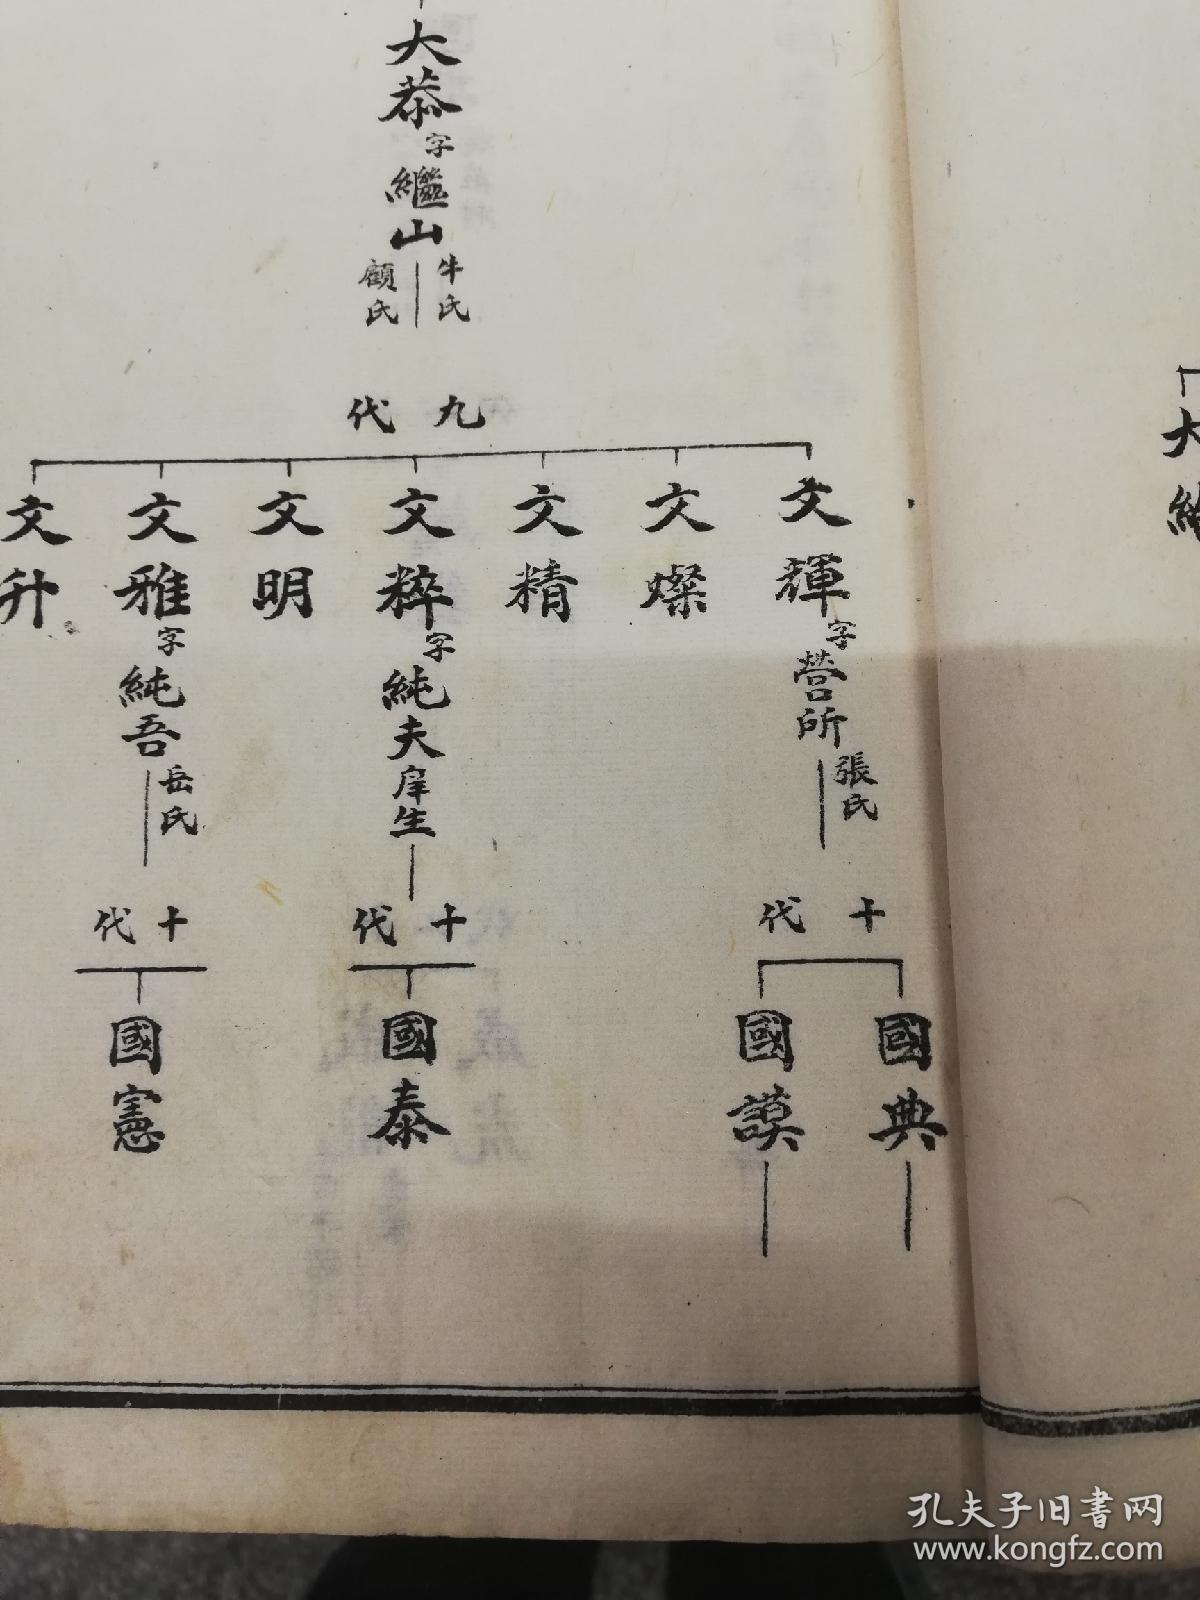 大
大恭字繼山
牛氏
顧氏
九代
文輝字營所
張氏
文燦
文精
文粹字純夫庠生
文明
文雅字純吾
岳氏
文升
十代
國典
國謨
十代
國泰
十代
國憲
孔夫子旧书网
www.kongfz.com